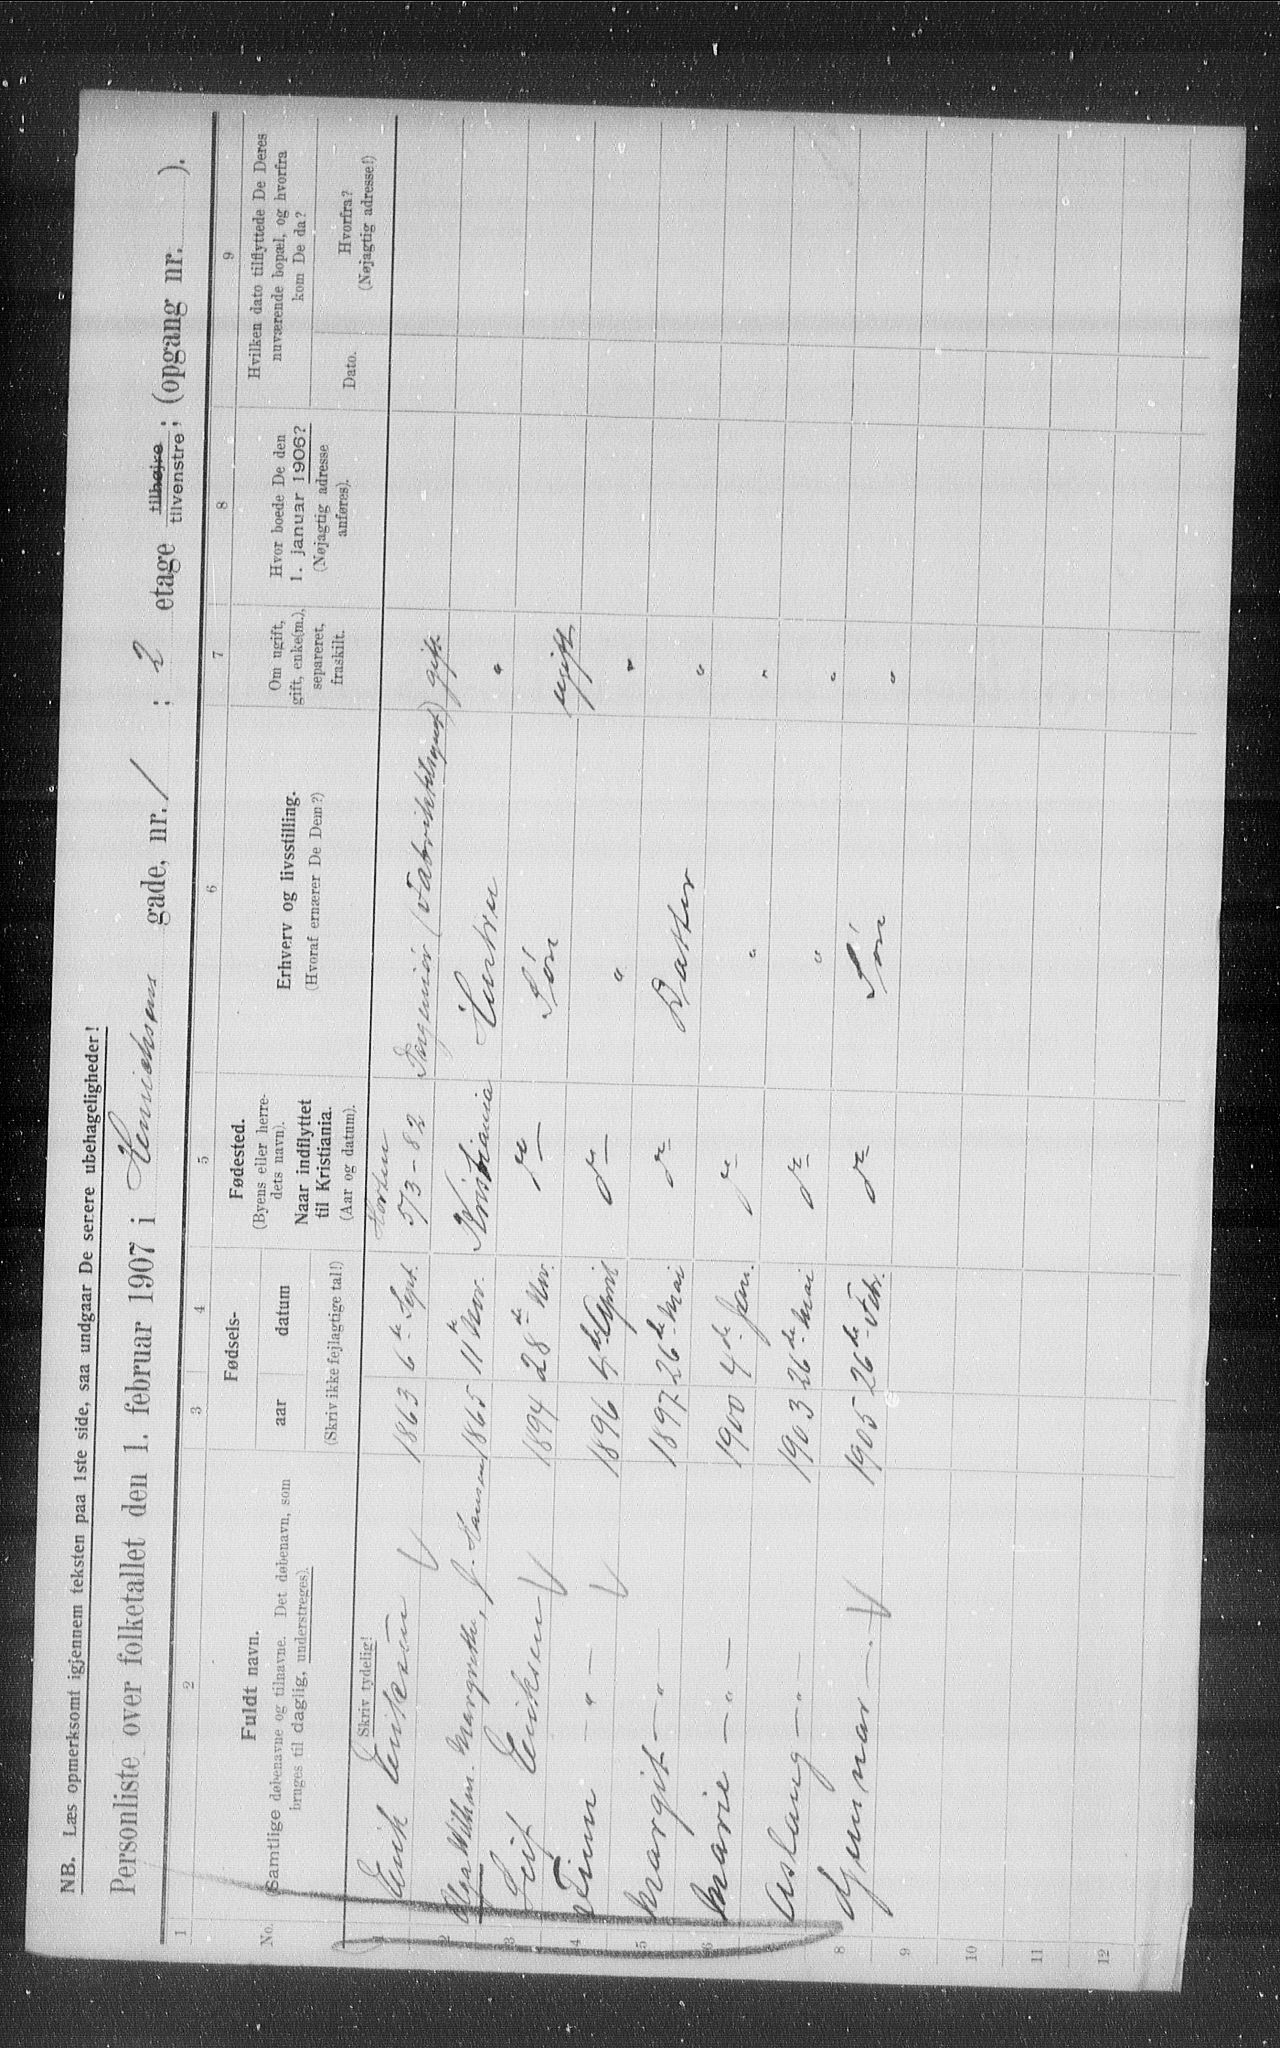 NB. Læs opmerksomt igjennem teksten paa 1ste side, saa undgaar De senere ubehageligheder!
Personliste over folketallet den 1. februar 1907 i Henrichsens gade, nr. 1 ; 2 etage tilhøjre tilvenstre; (opgang nr. ).
1 2 3 4 5 6 7 8 9
No. Fuldt navn. (Samtlige døbenavne og tilnavne. Det døbenavn, som bruges til daglig, understreges). Fødsels- aar datum Fødested. (Byens eller herredets navn). Naar indflyttet til Kristiania. (Aar og datum). Erhverv og livsstilling. (Hvoraf ernærer De Dem?) Om ugift, gift, enke(m.), separeret, fraskilt. Hvor boede De den 1. januar 1906? (Nøjagtig adresse anføres). Hvilken dato tilflyttede De Deres nuværende bopæl, og hvorfra kom De da?
Skriv tydelig! (Skriv ikke fejlagtige tal!) Dato. Hvorfra? (Nøjagtig adresse!)
1 Erik Eriksen 1863 6te Sept. Horten 5/3-82 Ingeniør (Fabriktilsynet) gift
2 Olga Vilhm. Margrethe, f. Hansen 1865 11te Nov. Kristiania Hustru "
3 Leif Eriksen 1894 28de Nov. do Søn ugift
4 Finn - " - 1896 4de April do " "
5 Margit - " - 1897 26de Mai do Datter "
6 Marie - " - 1900 4de Jan. do " "
7 Aslaug - " 1903 26de Mai do " "
8 Gunnar - " - 1905 26de Febr. do Søn "
9
10
11
12